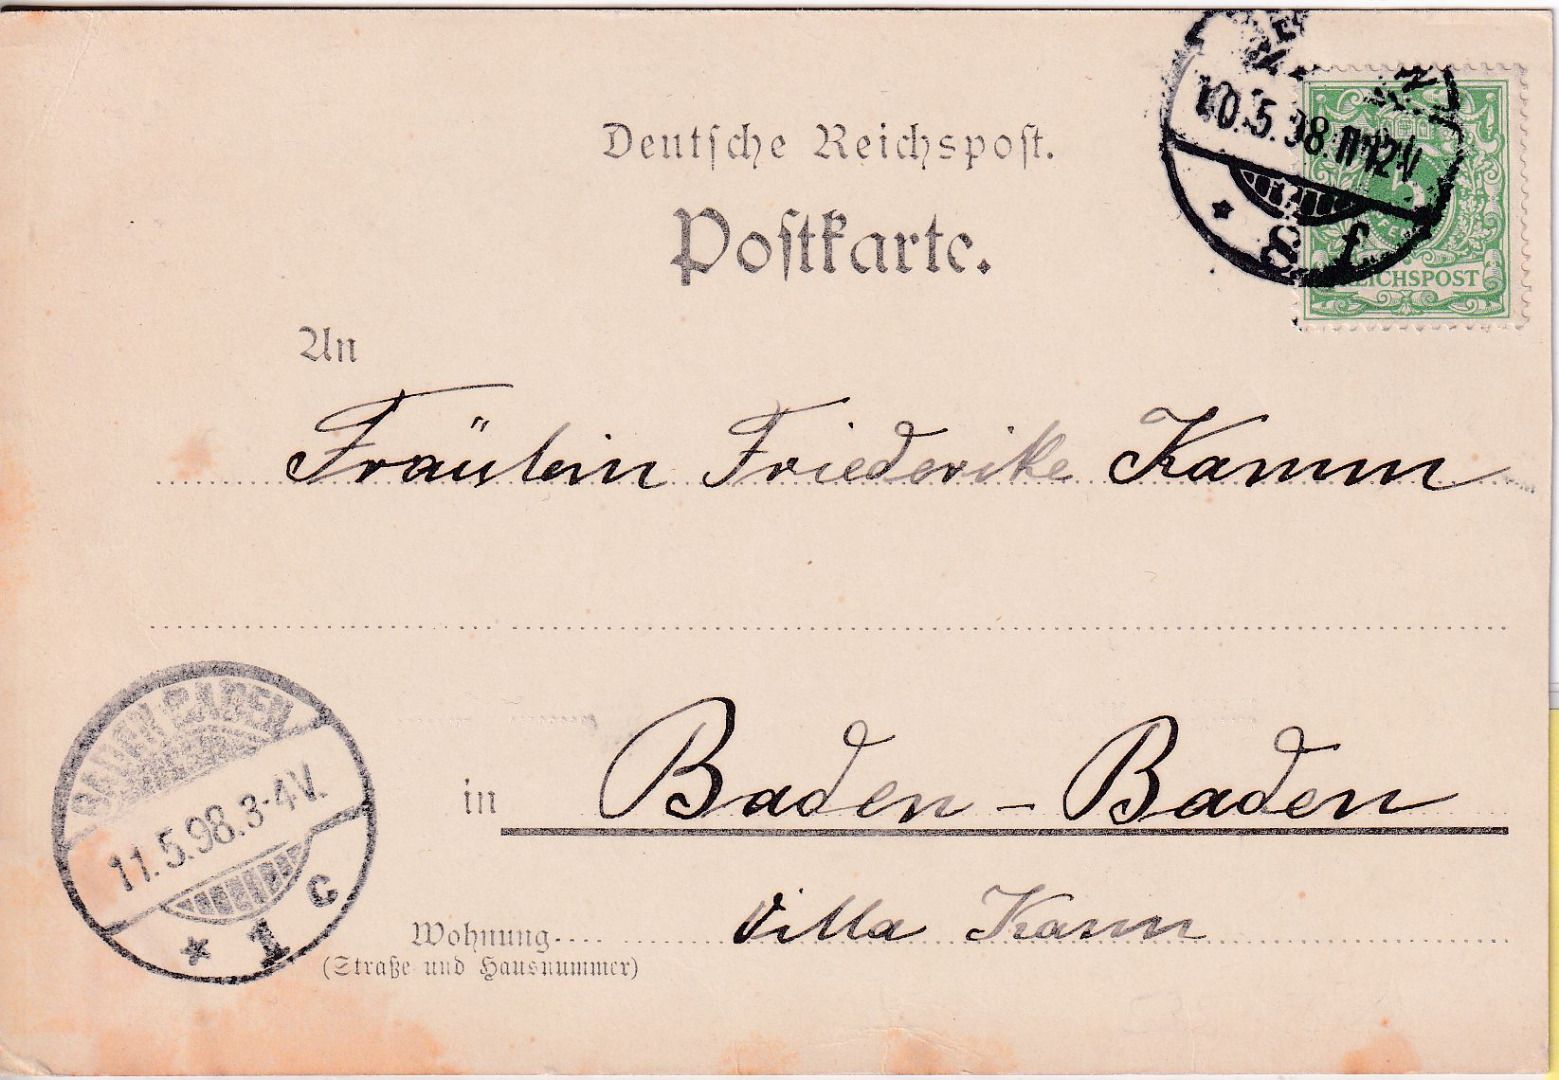 Deutsche Reichspost.
Postkarte.
10.5.98.11-12V.
* 8 f.
5
REICHSPOST
An
Fräulein Friederike Kamm
BADEN-BADEN
11.5.98.3-4V.
* 1 c
in Baden-Baden
Wohnung
Villa Kamm
(Straße und Hausnummer)